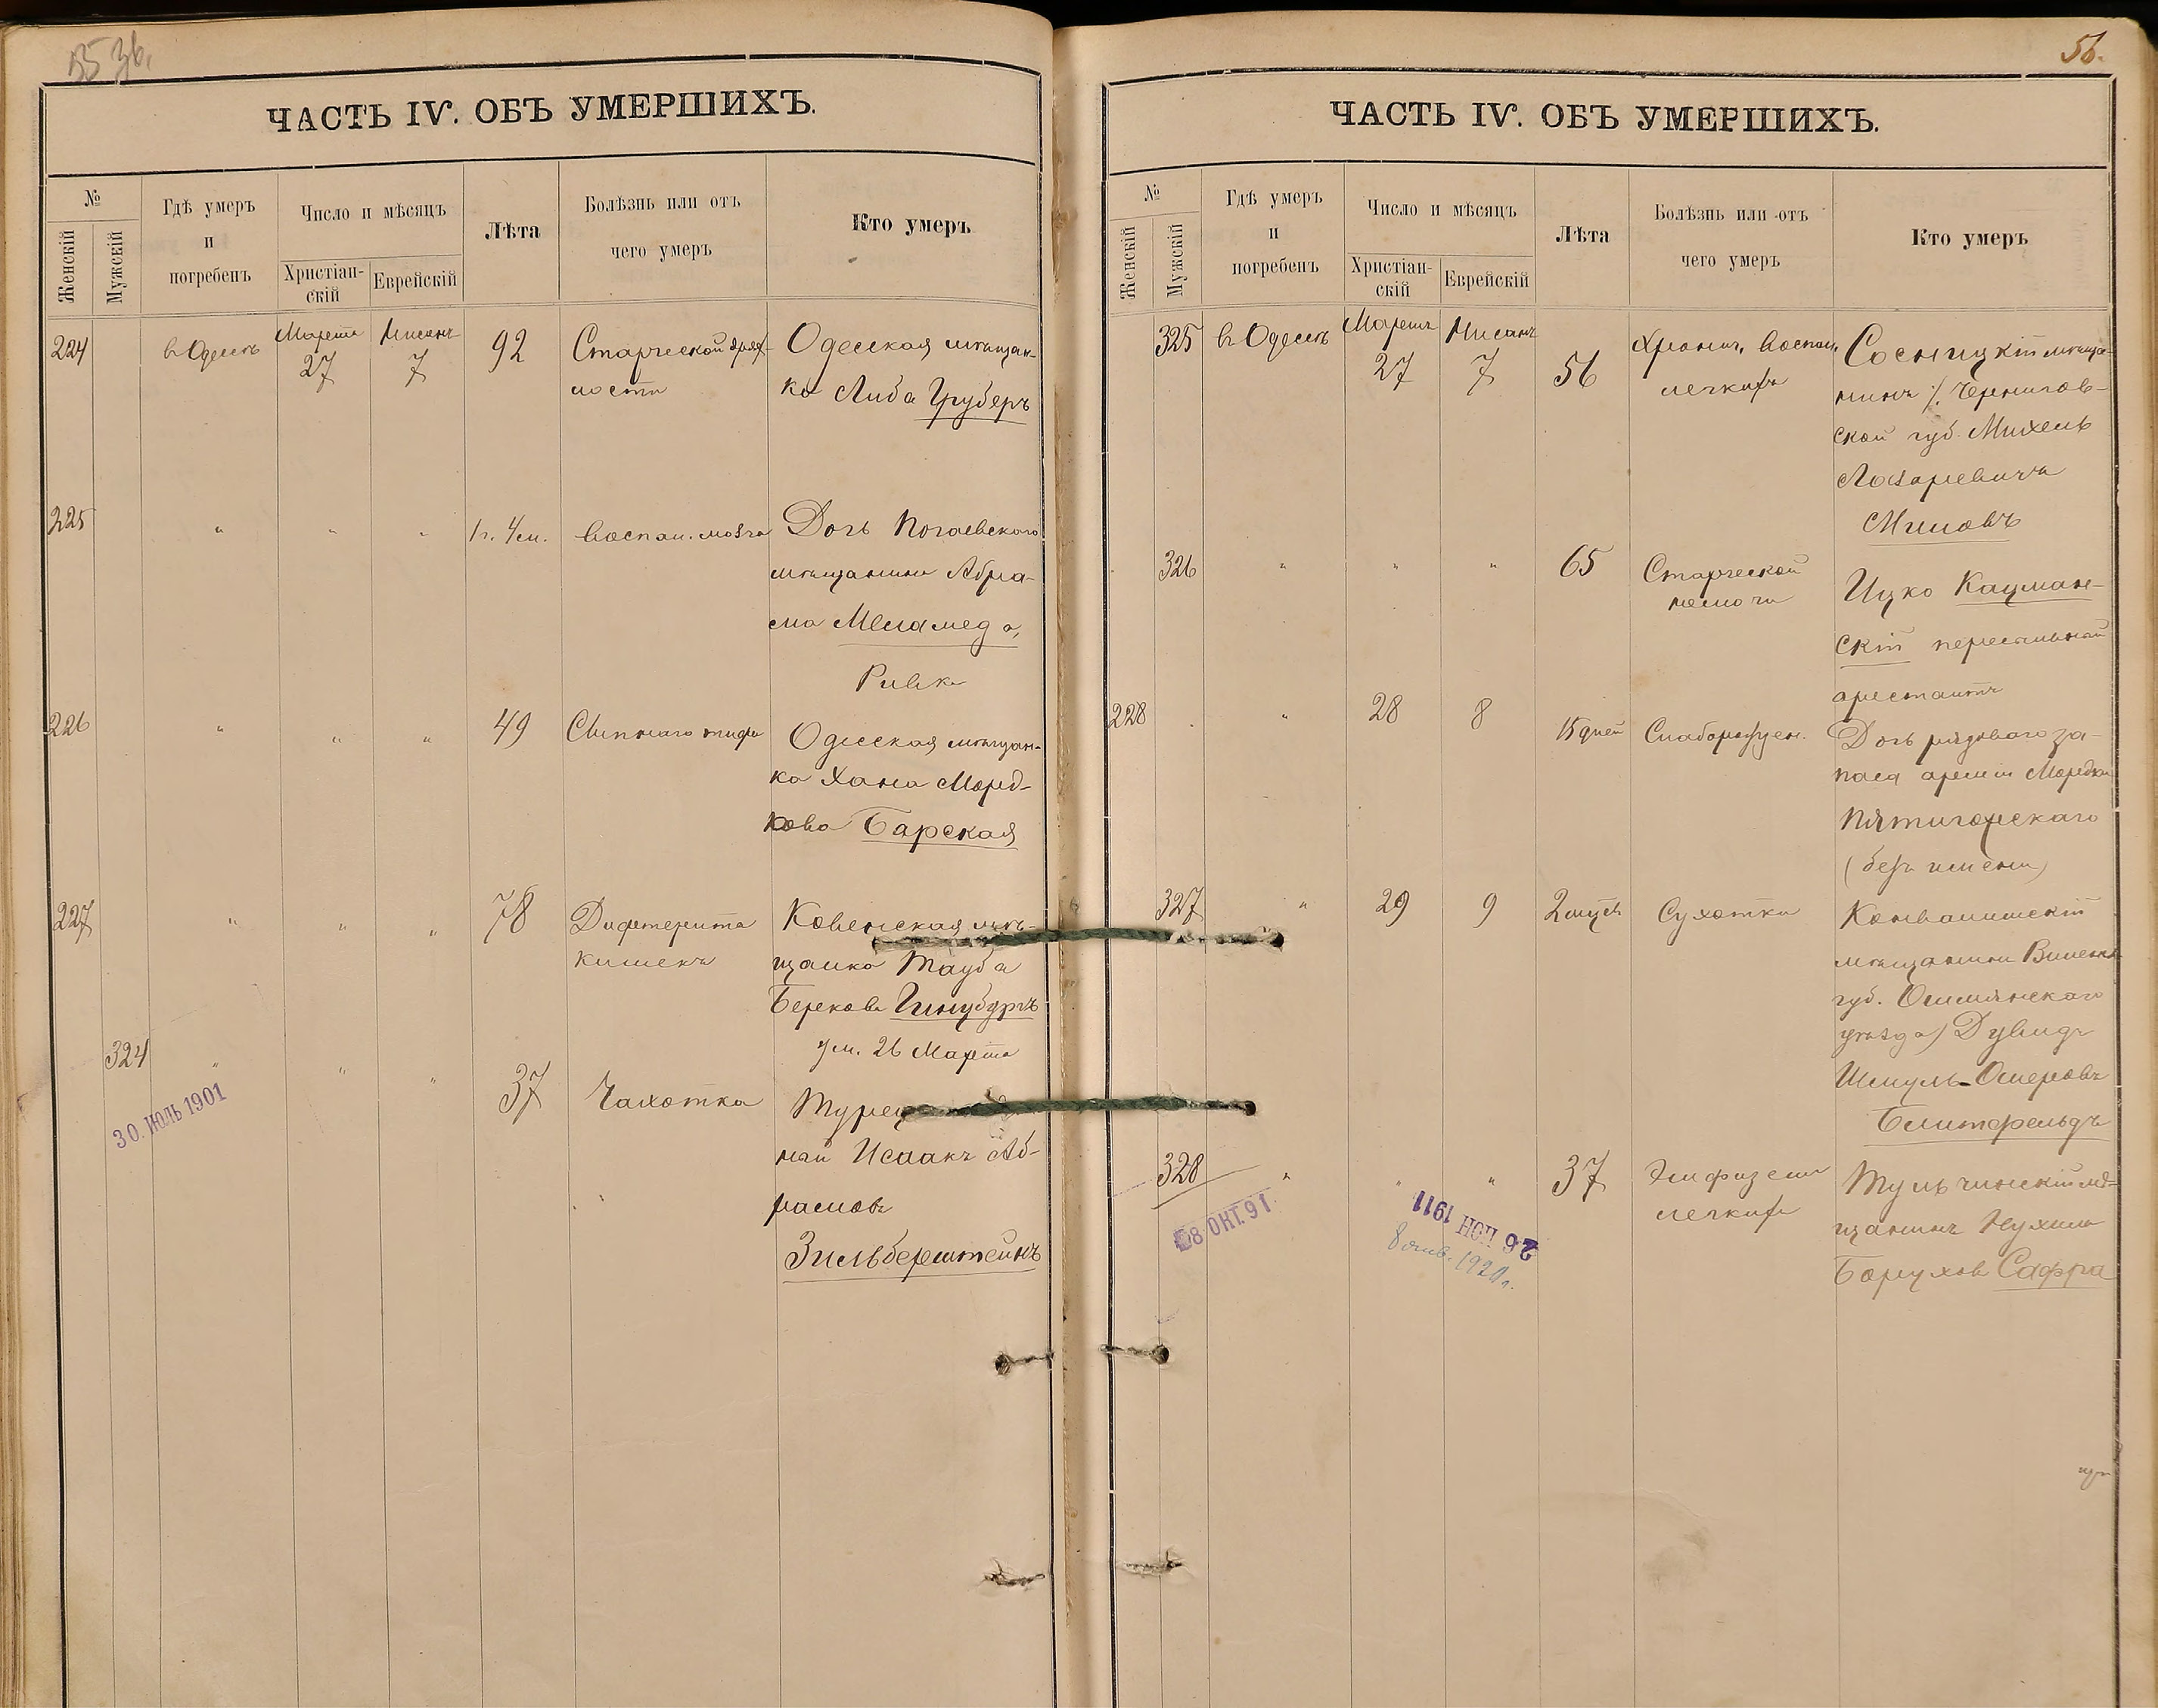 56.
ЧАСТЬ IV. ОБЪ УМЕРШИХЪ.
№
Женскій
Мужскій
Гдѣ умеръ
и
погребенъ
Число и мѣсяцъ
Христіан-
скій
Еврейскій
Лѣта
Болѣзнь или отъ
чего умеръ
Кто умеръ
224 въ Одессѣ Марта 27 Нисанъ 7 92 Старческой дрях- Одесская мѣщан-
лости ка Либа Груберъ
225 " " " 1 г. 4 м. Воспал. мозга Дочь Почаевскаго
мѣщанина Абра-
ма Меламеда,
Ривка
226 " " " 49 Сыпнаго тифа Одесская мѣщан-
ка Хана Морд-
кова Барская
227 " " " 78 Дифтерита Ковенская мѣ-
кишекъ щанка Тауба
Беркова Гинцбургъ
ум. 26 Марта
324 " " " 37 Чахотка
ный Исаакъ Аб-
рамовъ
Зильберштейнъ
30. ІЮЛЬ 1901
ЧАСТЬ IV. ОБЪ УМЕРШИХЪ.
№
Женскій
Мужскій
Гдѣ умеръ
и
погребенъ
Число и мѣсяцъ
Христіан-
скій
Еврейскій
Лѣта
Болѣзнь или отъ
чего умеръ
Кто умеръ
325 въ Одессѣ Марта 27 Нисанъ 7 56 Хронич. воспал. Сосницкій мѣща-
легкихъ нинъ Чернигов-
ской губ. Михель
Лазаревичъ
Миловъ
326 " " " 65 Старческой Ицко Кацман-
немочи скій пересыльный
арестантъ
228 " 28 8 15 дней Слаборожден. Дочь рядоваго за-
паса арміи Мордки
Пятигорскаго
(безъ имени)
327 " 29 9 2 мѣс. Сухотки
мѣщанина Виленск.
губ. Ошмянскаго
уѣзда) Дувидъ
Шмуль-Ошеровъ
Блитфельдъ
328 " " " 37 Эмфизема Тульчинскій мѣ-
легкихъ щанинъ Нухимъ
Боруховъ Сафра
26 1911